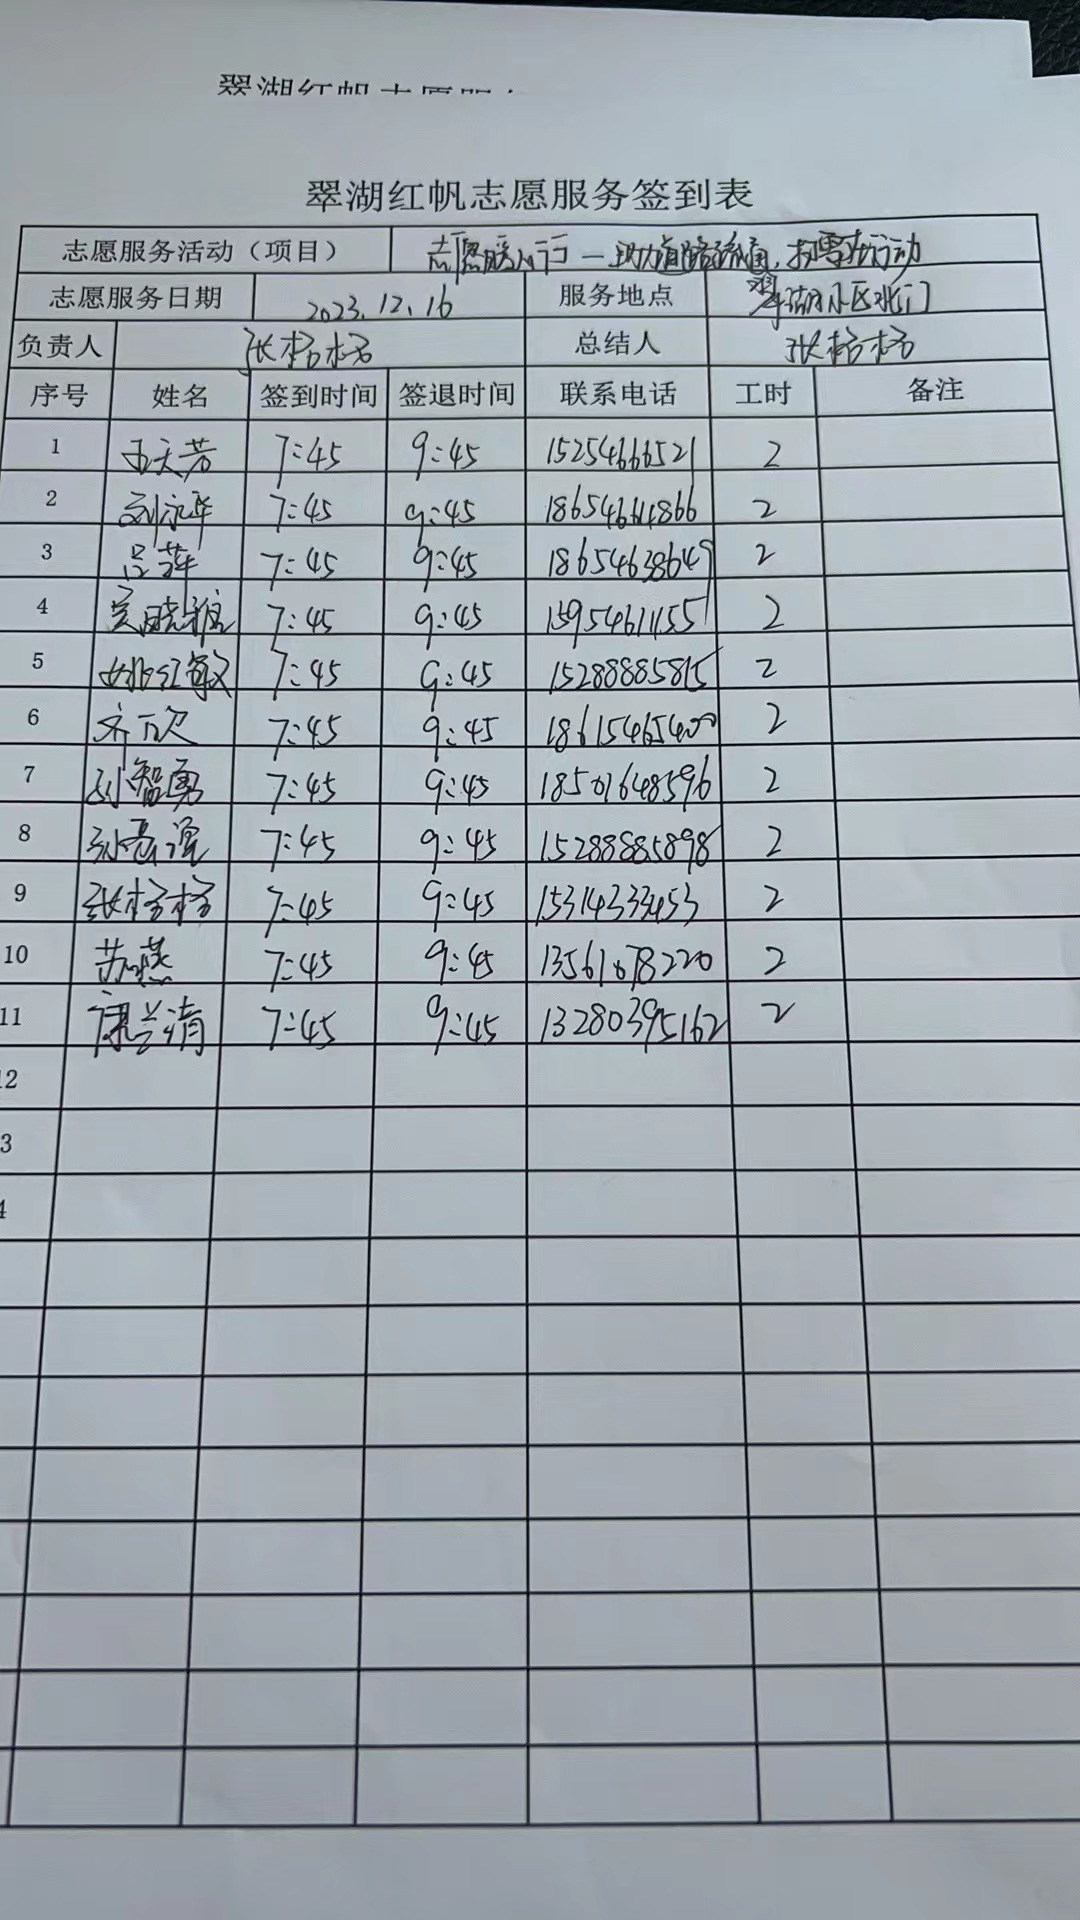 翠湖红帆志愿服务
翠湖红帆志愿服务签到表
志愿服务活动（项目） 志愿暖人行—助力道路疏通，扫雪在行动
志愿服务日期 2023.12.16 服务地点 翠湖小区北门
负责人 张杨杨 总结人 张杨杨
序号 姓名 签到时间 签退时间 联系电话 工时 备注
1 7:45 9:45 15254666521 2
2 刘永华 7:45 9:45 2
3 吕萍 7:45 9:45 18654638649 2
4 7:45 9:45 2
5 姚红敏 7:45 9:45 15288885815 2
6 齐欣 7:45 9:45 18615465400 2
7 孙智勇 7:45 9:45 18501648596 2
8 7:45 9:45 15288885898 2
9 张杨杨 7:45 9:45 15314333453 2
10 苏燕 7:45 9:45 13561678220 2
11 康兰清 7:45 9:45 13280395162 2
12
13
14